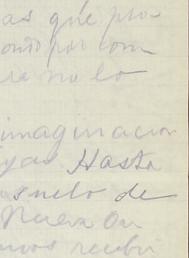 as que pro
pondo por com
ra no lo
imaginacion
ijas Hasta
suelo de
Nueva Or
mos recibi